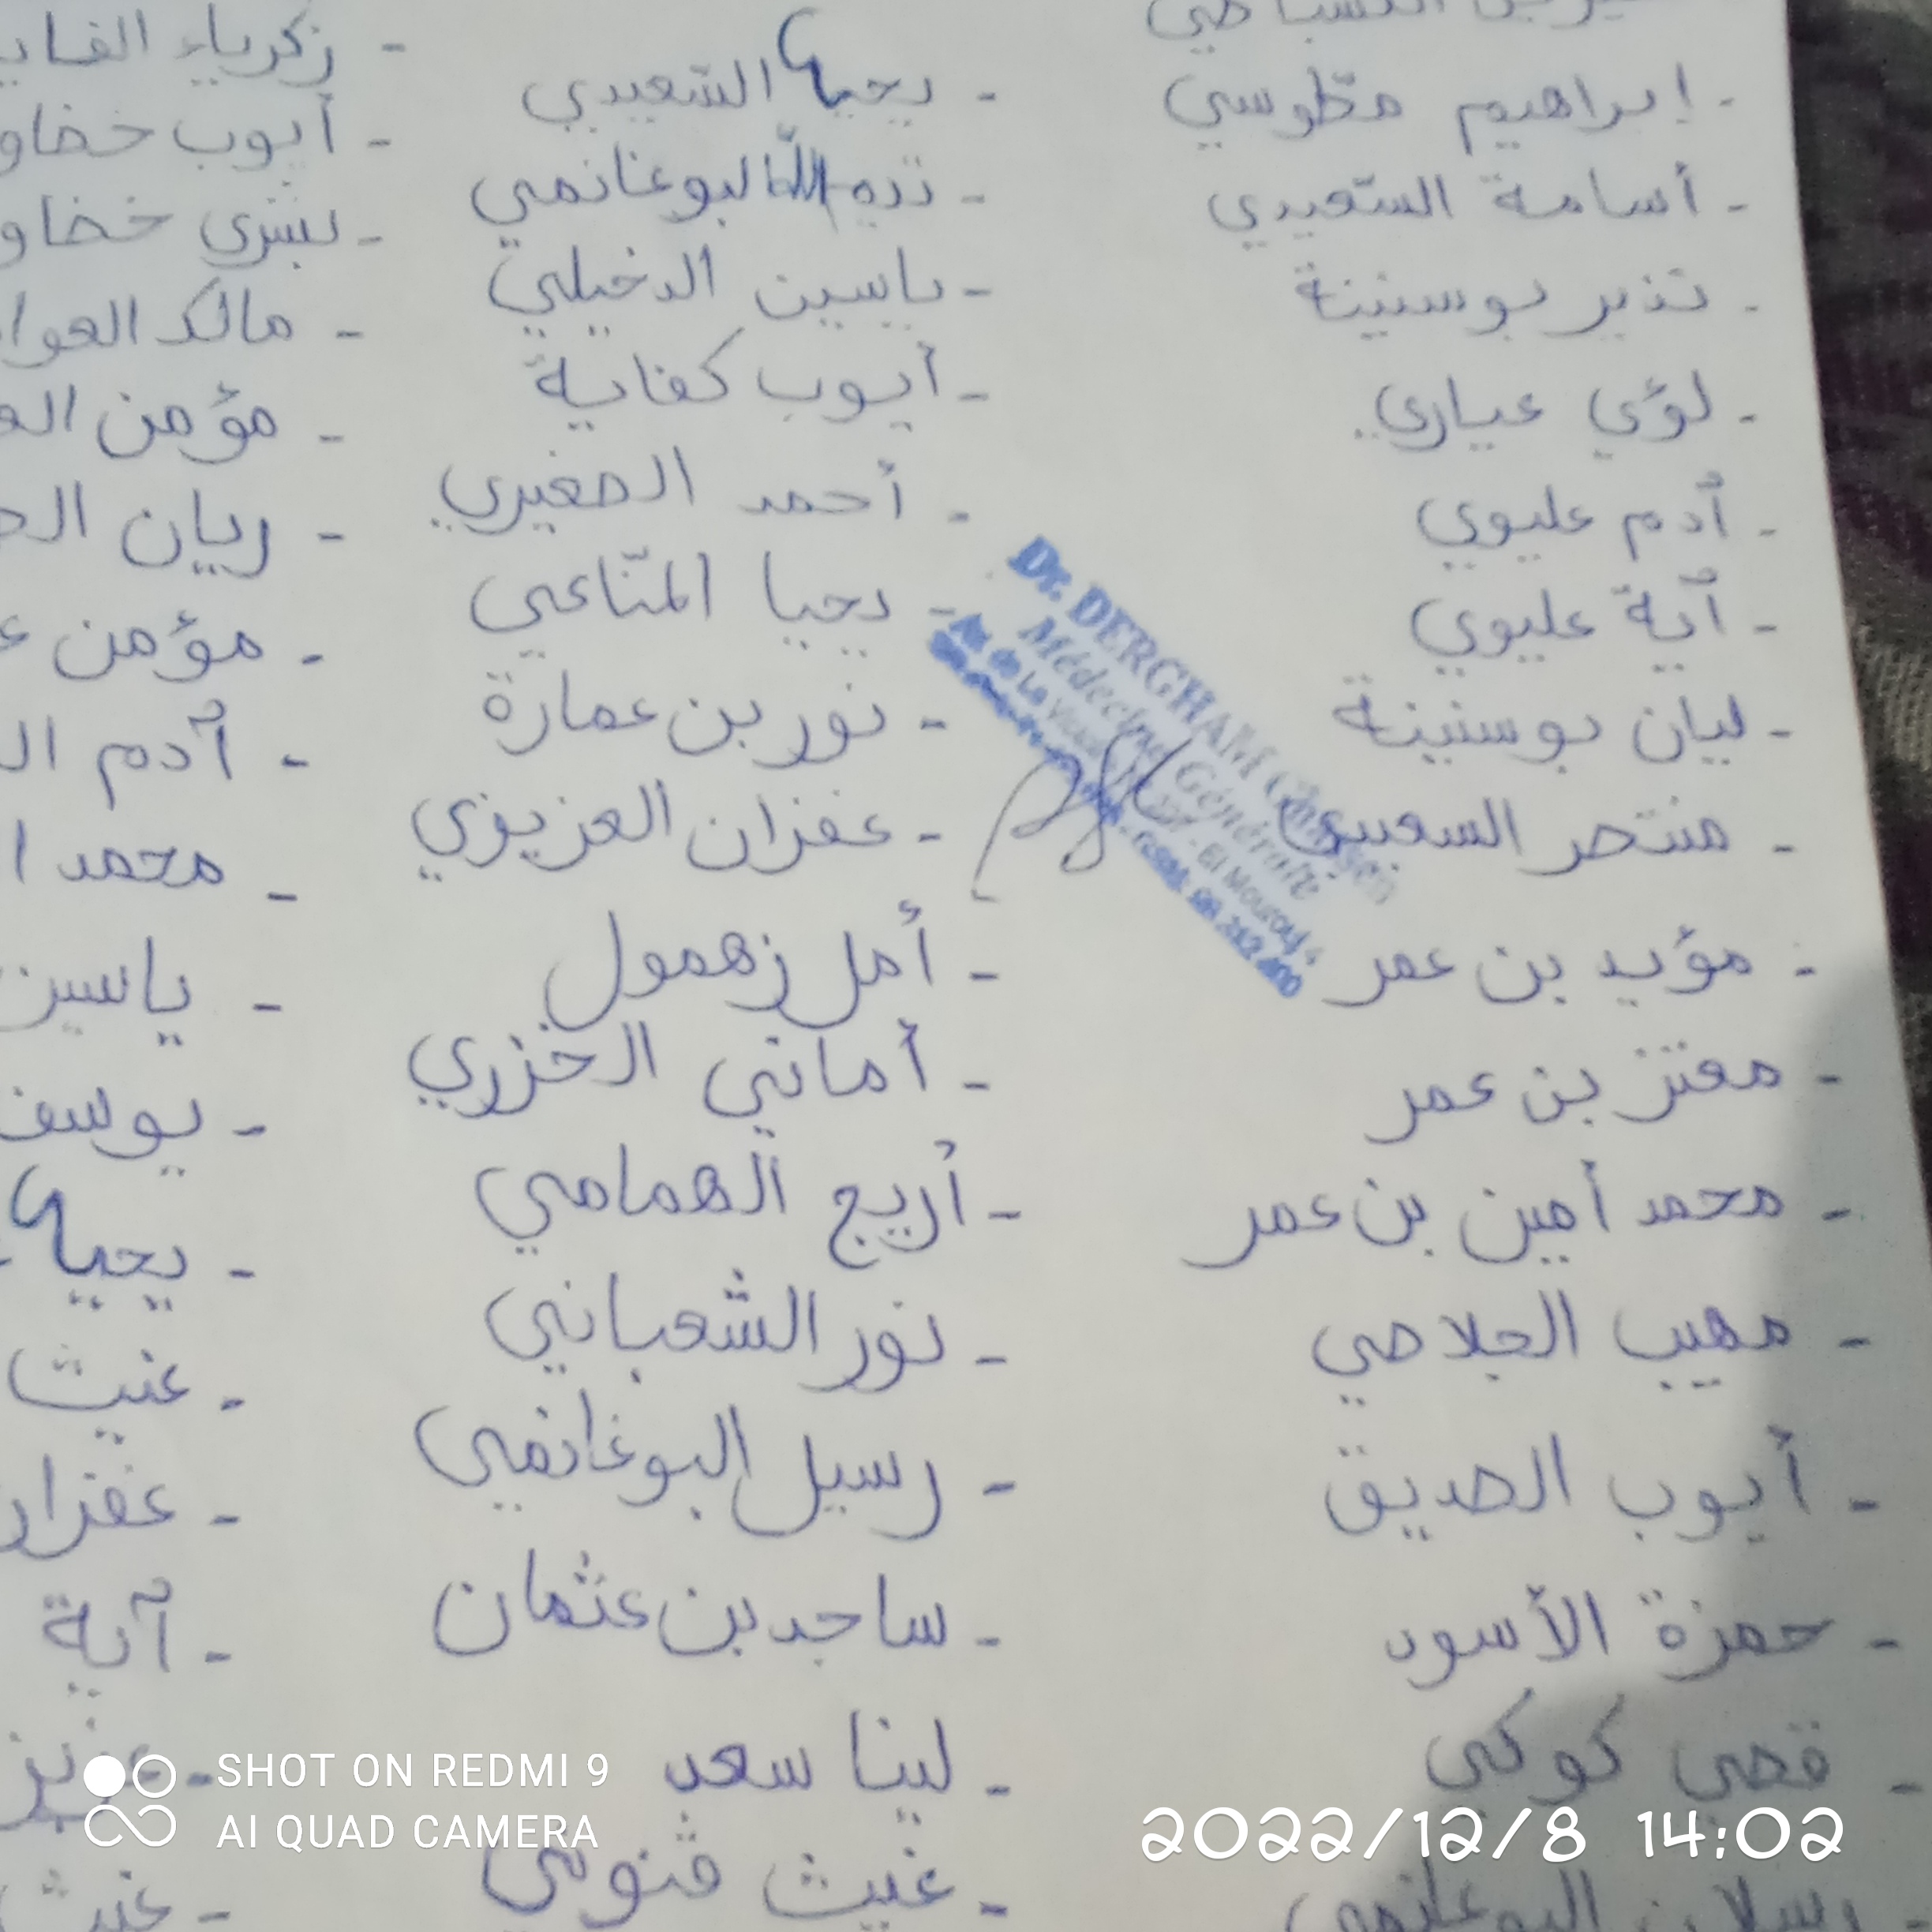 - إبراهيم مطوسي
- أسامة السّعيدي
- نذير بوسنينة
- لؤي عياري
- أدم عليوي
- أية عليوي
- ليان بوسنينة
- منتصر السعيدي
- مؤيد بن عمر
- معتز بن عمر
- محمد أمين بن عمر
- مهيب الجلاصي
- أيوب الصديق
- حمزة الأسود
- قصي كوكي
- رسلان البوغانمي
- يحيى السّعيدي
- البوغانمي
- ياسين الدخيلي
- أيوب كفاية
- أحمد الصغيري
- يحيا المنّاعي
- نور بن عمارة
- غفران العزيزي
- أمل زهمول
- أماني الخزري
- أريج الهمامي
- نور الشعباني
- رسيل البوغانمي
- ساجد بن عثمان
- لينا سعد
- غيث فنوشي
- زكرياء
- أيوب
- بشرى
- مالك
- مؤمن
- ريان
- مؤمن
- أدم
- محمد
- ياسين
- يوسف
- يحيى
- غيث
- غفران
- آية
- عزيز
- غيث
Dr. DERGHAM
Médecine Générale
Av. de La - El Mourouj
SHOT ON REDMI 9
AI QUAD CAMERA
2022/12/8 14:02